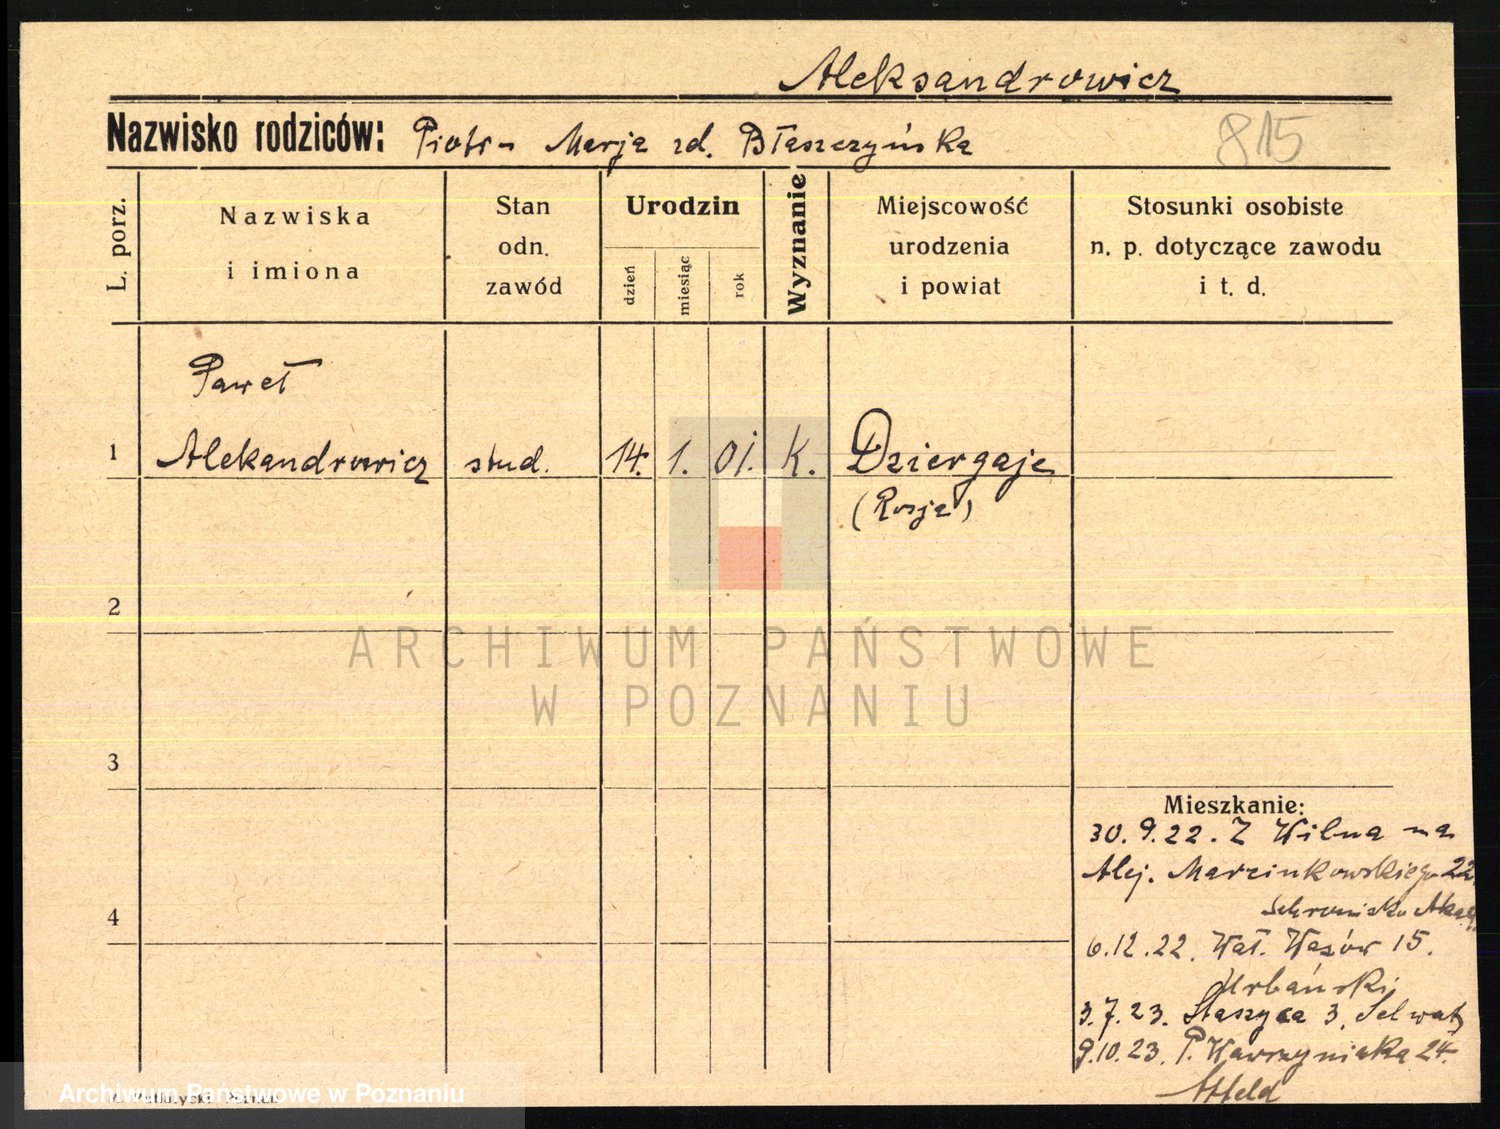 Aleksandrowicz
Nazwisko rodziców: Piotr - Marja zd. Błaszczyńska
815
L. porz.
Nazwiska
i imiona
Stan
odn.
zawód
Urodzin
dzień
miesiąc
rok
Wyznanie
Miejscowość
urodzenia
i powiat
Stosunki osobiste
n. p. dotyczące zawodu
i t. d.
Paweł
1 Alekandrowicz stud. 14. 1. 01. K. Dziergaje
(Rosja)
2
ARCHIWUM PAŃSTWOWE
W POZNANIU
3
Mieszkanie:
30. 9. 22. Z Wilna na
Alej. Marcinkowskiego 22
Schronisko Akad.
4
6.12.22. Wał. Wazów 15.
Urbański
3.7.23. Staszyca 3,
9.10.23. P. Wawrzyniaka 24.
Archiwum Państwowe w Poznaniu